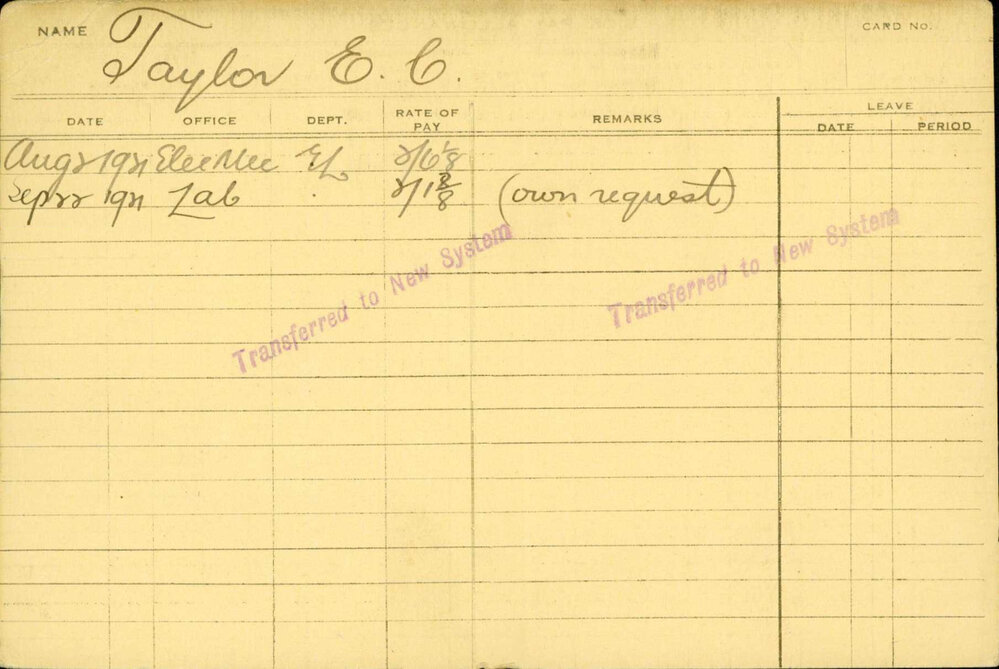 NAME Taylor E. C. CARD NO.
DATE OFFICE DEPT. RATE OF PAY REMARKS LEAVE DATE PERIOD
Aug 2 1921 Elec Mec 2/6 1/8
Sep 22 1921 Lab 2/1 3/8 (own request)
Transferred to New System Transferred to New System